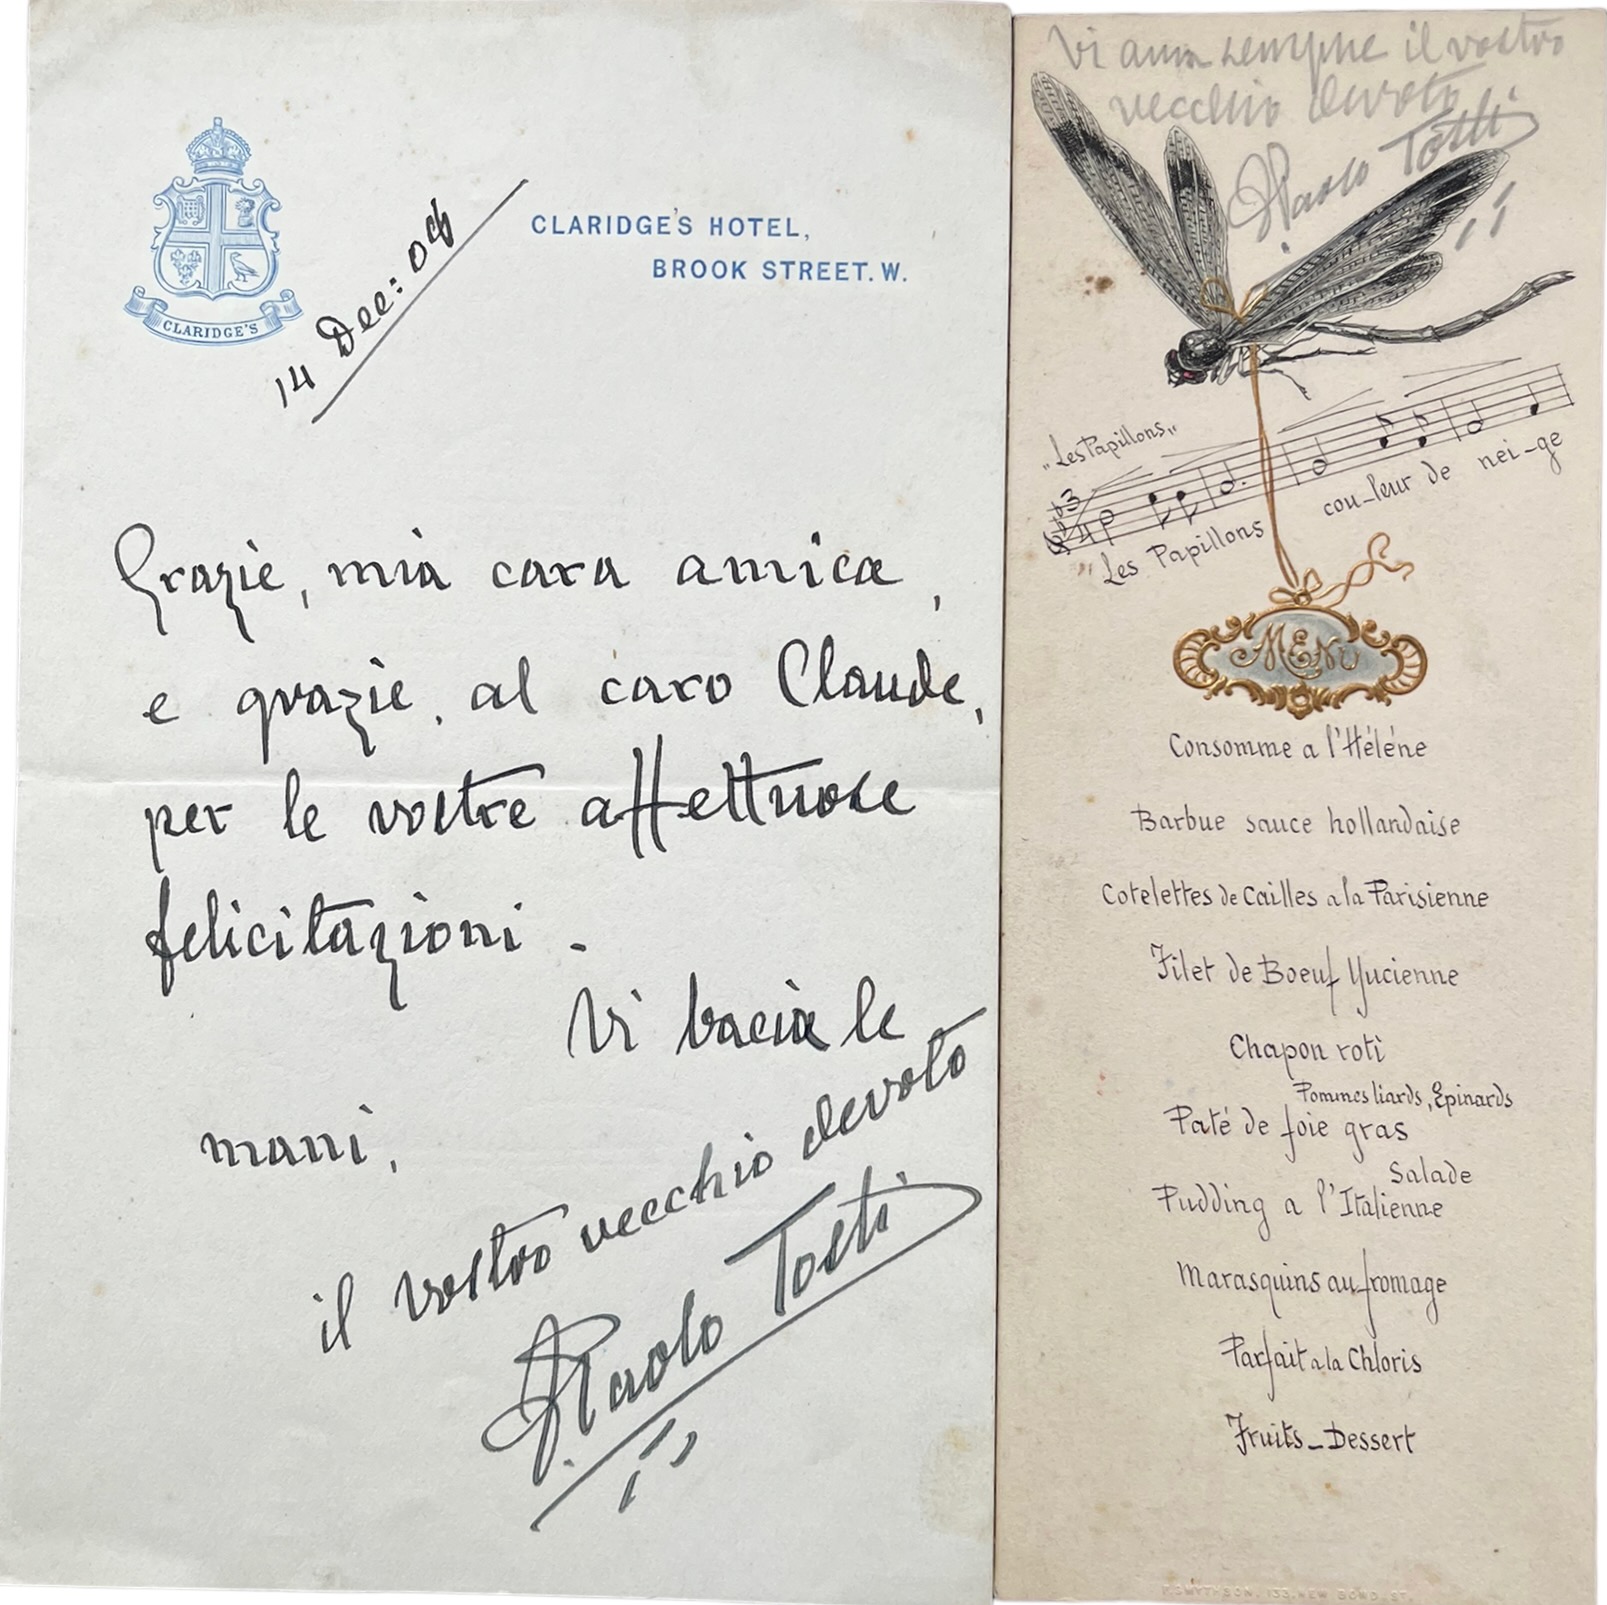 CLARIDGE'S
14 Dec: 04
CLARIDGE'S HOTEL,
BROOK STREET. W.
Grazie, mia cara amica,
e grazie, al caro Claude,
per le vostre affettuose
felicitazioni -
Vi bacia le
mani,
il vostro vecchio devoto
F. Paolo Tosti
Vi ama sempre il vostro
vecchio devoto
F. Paolo Tosti
"Les Papillons"
"Les Papillons cou-leur de nei-ge
MENU
Consomme a l'Héléne
Barbue sauce hollandaise
Cotelettes de Cailles a la Parisienne
Filet de Boeuf Yucienne
Chapon roti
Pommes liards, Epinards
Paté de foie gras
Salade
Pudding a l'Italienne
Marasquins au fromage
Parfait a la Chloris
Fruits - Dessert
F. SMYTHSON. 133, NEW BOND ST.